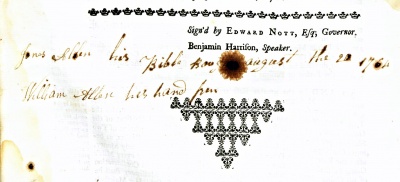 Sign'd by EDWARD NOTT, Esq; Governor.
Benjamin Harrison, Speaker.
Jones Allen his Bible august the 22 1764
William Allen his hand pen